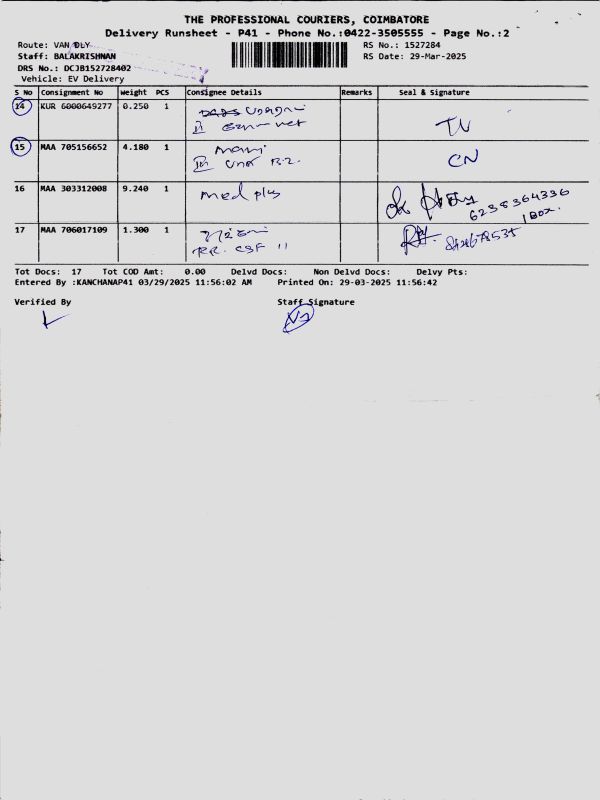 THE PROFESSIONAL COURIERS, COIMBATORE
Delivery Runsheet - P41 - Phone No.:0422-3505555 - Page No.:2
Route: VAN DLY RS No.: 1527284
Staff: BALAKRISHNAN RS Date: 29-Mar-2025
DRS No.: DCJB152728402
Vehicle: EV Delivery
S No Consignment No Weight PCS Consignee Details Remarks Seal & Signature
14 KUR 6000649277 0.250 1
15 MAA 705156652 4.180 1 CN
16 MAA 303312008 9.240 1 med plus
6238364336
1 Box.
17 MAA 706017109 1.300 1
Tot Docs: 17 Tot COD Amt: 0.00 Delvd Docs: Non Delvd Docs: Delvy Pts:
Entered By :KANCHANAP41 03/29/2025 11:56:02 AM Printed On: 29-03-2025 11:56:42
Verified By Staff Signature